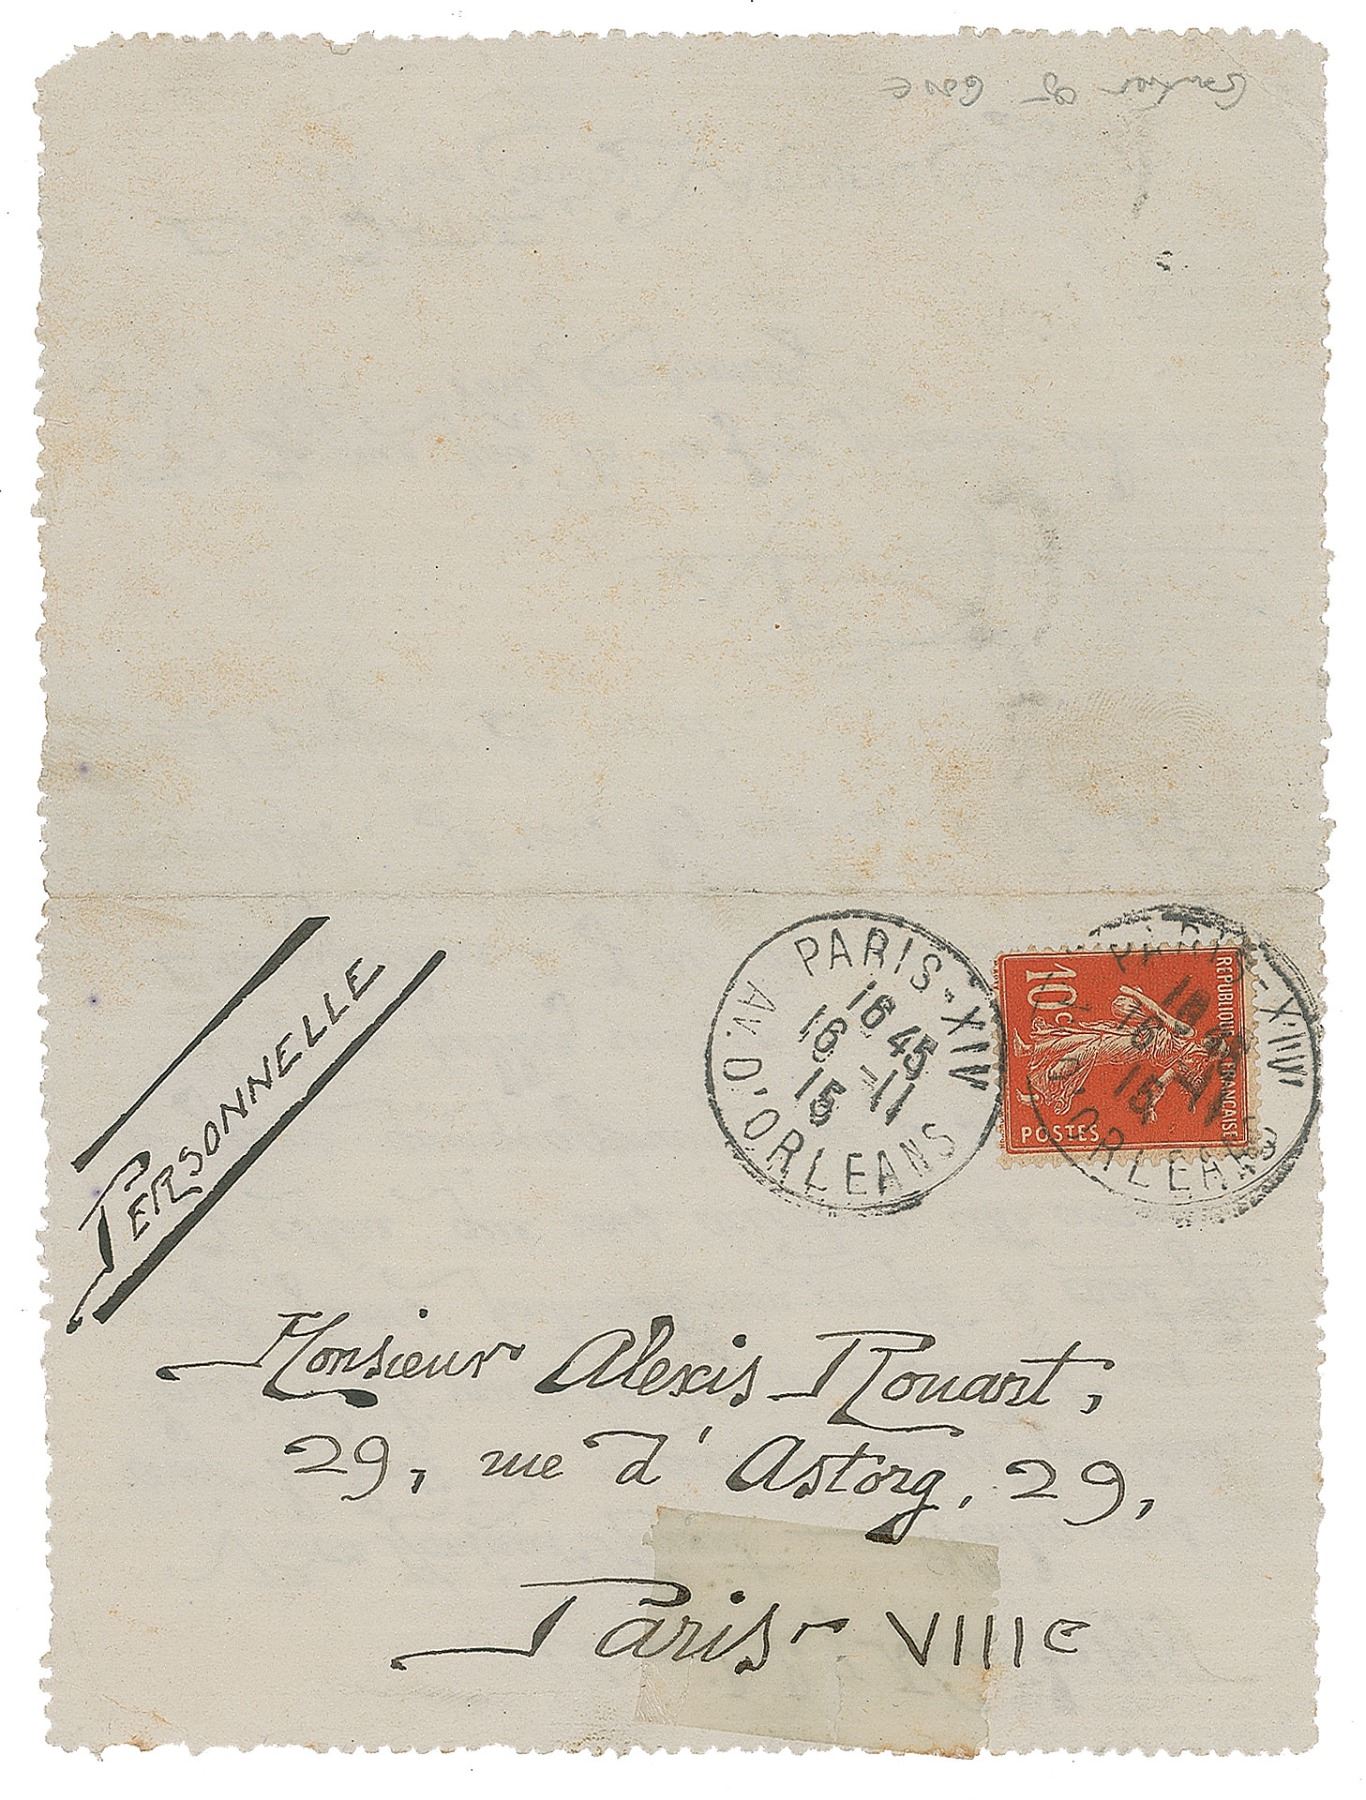 PERSONNELLE
PARIS-XIV
16 45
16 -11
15
AV. D'ORLEANS
REPUBLIQUE FRANCAISE
10c
POSTES
PARIS-XIV
16 45
16 -11
15
AV. D'ORLEANS
Monsieur Alexis Rouart,
29, rue d'Astorg, 29,
Paris - VIIIe